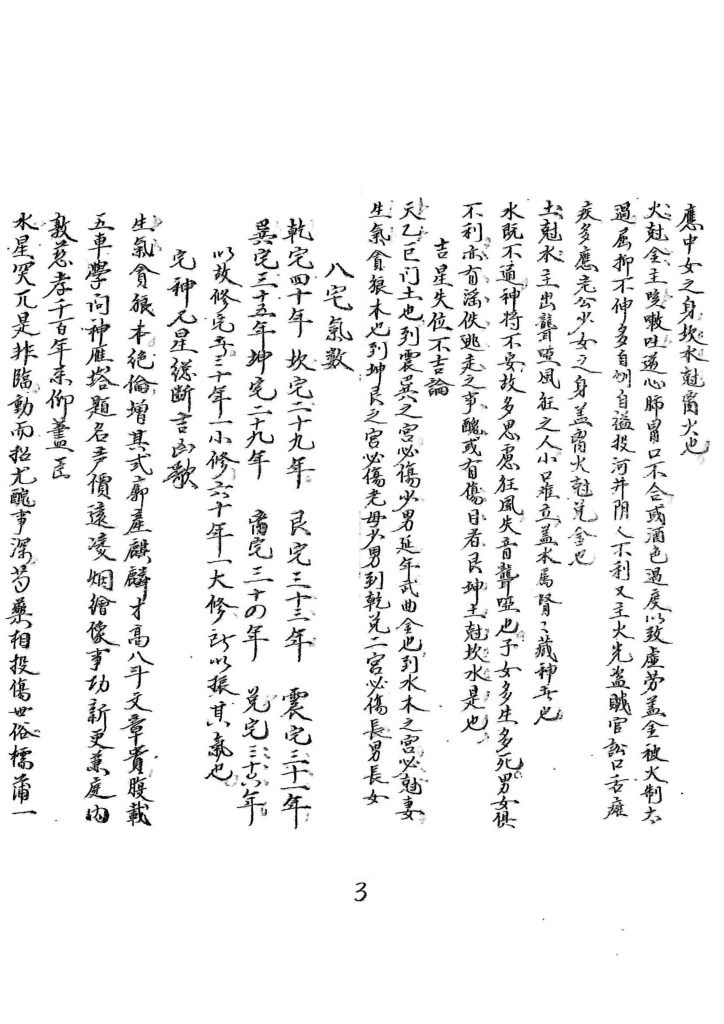 應中女之身坎水尅离火也
火尅金主咳嗽吐逆心肺胃口不合或酒色過度以致虛勞盖金被火制太
過屈抑不伸多自刎自縊投河井阴人不利又主火光盗賊官訟口舌瘟
疾多應老公少女之身盖离火尅兑金也
土尅水主出聾啞風狂之人小口难立盖水馬腎々藏神者也
水既不通神将不安故多思慮狂風失音聾啞也子女多生多死男女俱
不利亦有淫佚逃走之事醜或有傷目者艮坤土尅坎水是也
吉星失位不吉論
天乙巨门土也到震巽之宮必傷少男延年武曲金也到水木之宮必尅妻
生氣貪狼木也到坤艮之宮必傷老母少男到乾兑二宮必傷長男長女
八宅氣数
乾宅四十年 坎宅二十九年 艮宅三十三年 震宅三十一年
巽宅三十五年 坤宅二十九年 离宅三十四年 兑宅三十六年
以故修宅者三十年一小修六十年一大修所以振其氣也
宅神凡星總断吉凶歌
生氣貪狼本絶倫增其式廓產麒麟才高八斗文章貴腹載
五車學问神應塔題名声價遠凌烟繪像事功新更兼庭内
敦慈孝千百年来仰藎臣
水星冥兀是非臨動而招尤醜事深芍藥相投傷世俗樗蒲一
3